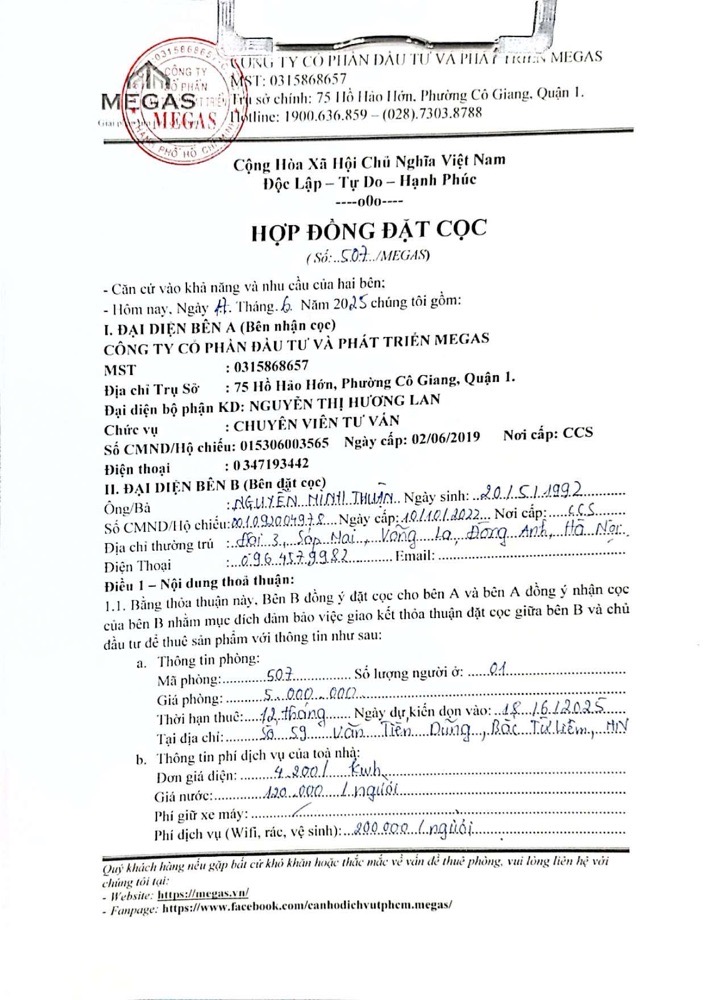 CÔNG TY CỔ PHẦN ĐẦU TƯ VÀ PHÁT TRIỂN MEGAS
MST: 0315868657
Trụ sở chính: 75 Hồ Hảo Hớn, Phường Cô Giang, Quận 1.
Hotline: 1900.636.859 – (028).7303.8788
MEGAS
CÔNG TY
CỔ PHẦN
MEGAS
Cộng Hòa Xã Hội Chủ Nghĩa Việt Nam
Độc Lập – Tự Do – Hạnh Phúc
----o0o----
HỢP ĐỒNG ĐẶT CỌC
(Số:..507../MEGAS)
- Căn cứ vào khả năng và nhu cầu của hai bên;
- Hôm nay, Ngày 17. Tháng.6. Năm 2025 chúng tôi gồm:
I. ĐẠI DIỆN BÊN A (Bên nhận cọc)
CÔNG TY CỔ PHẦN ĐẦU TƯ VÀ PHÁT TRIỂN MEGAS
MST : 0315868657
Địa chỉ Trụ Sở : 75 Hồ Hảo Hớn, Phường Cô Giang, Quận 1.
Đại diện bộ phận KD: NGUYỄN THỊ HƯƠNG LAN
Chức vụ : CHUYÊN VIÊN TƯ VẤN
Số CMND/Hộ chiếu: 015306003565 Ngày cấp: 02/06/2019 Nơi cấp: CCS
Điện thoại : 0347193442
II. ĐẠI DIỆN BÊN B (Bên đặt cọc)
Ông/Bà : NGUYỄN MINH THUẬN Ngày sinh: 20/5/1992
Số CMND/Hộ chiếu: 001092004978 Ngày cấp: 10/10/2022 Nơi cấp: CCS
Địa chỉ thường trú : Đội 3, Sáp Mai, Võng La, Đông Anh, Hà Nội
Điện Thoại : 0964579982 Email:
Điều 1 – Nội dung thoả thuận:
1.1. Bằng thỏa thuận này, Bên B đồng ý đặt cọc cho bên A và bên A đồng ý nhận cọc
của bên B nhằm mục đích đảm bảo việc giao kết thỏa thuận đặt cọc giữa bên B và chủ
đầu tư để thuê sản phẩm với thông tin như sau:
a. Thông tin phòng:
Mã phòng: 507 Số lượng người ở: 01
Giá phòng: 5.000.000
Thời hạn thuê: 12 tháng Ngày dự kiến dọn vào: 18/6/2025
Tại địa chỉ: Số 59 Văn Tiến Dũng, Bắc Từ Liêm, HN
b. Thông tin phí dịch vụ của toà nhà:
Đơn giá điện: 4.200/ kwh
Giá nước: 120.000 /người
Phí giữ xe máy: /
Phí dịch vụ (Wifi, rác, vệ sinh): 200.000 /người
Quý khách hàng nếu gặp bất cứ khó khăn hoặc thắc mắc về vấn đề thuê phòng, vui lòng liên hệ với
chúng tôi tại:
- Website: https://megas.vn/
- Fanpage: https://www.facebook.com/canhodichvutphcm.megas/